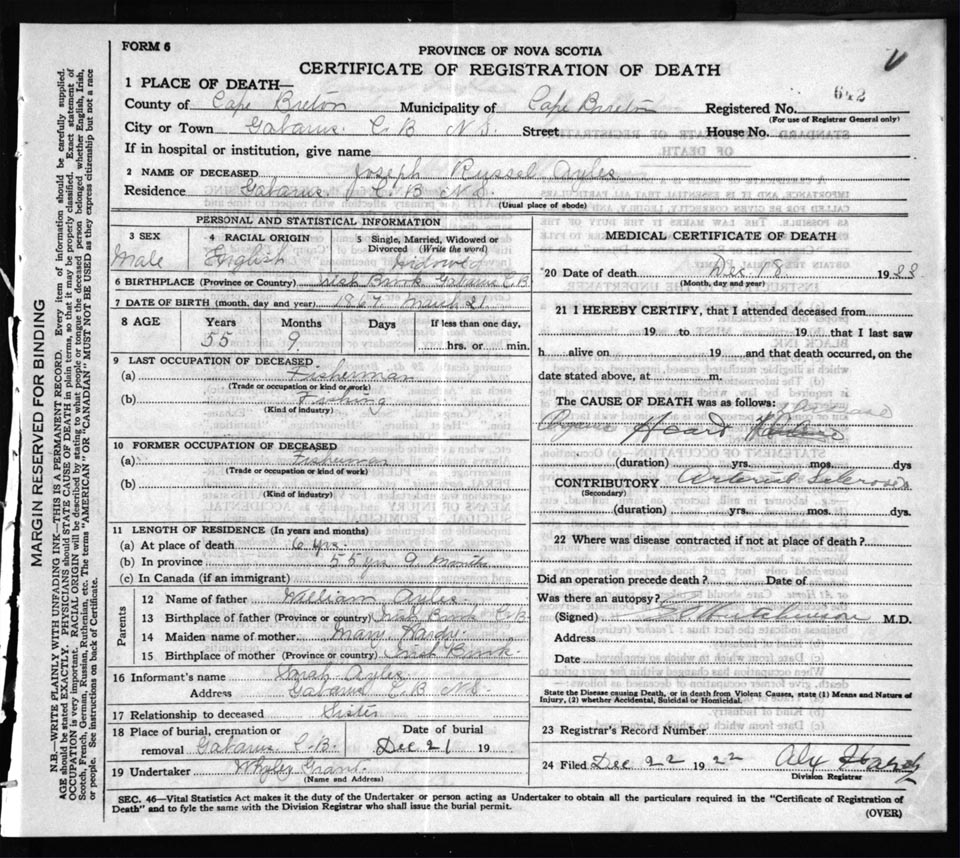 FORM 6
PROVINCE OF NOVA SCOTIA
CERTIFICATE OF REGISTRATION OF DEATH
642
1 PLACE OF DEATH—
County of Cape Breton Municipality of Cape Breton Registered No.
(For use of Registrar General only)
City or Town Gabarus C B N S Street House No.
If in hospital or institution, give name
2 NAME OF DECEASED Joseph Russel Ayles
Residence Gabarus C B N.S.
(Usual place of abode)
PERSONAL AND STATISTICAL INFORMATION
3 SEX Male
4 RACIAL ORIGIN English
5 Single, Married, Widowed or Divorced (Write the word) Widowed
6 BIRTHPLACE (Province or Country) Irish Brook Gabarus C.B.
7 DATE OF BIRTH (month, day and year) 1867 March 21
8 AGE Years Months Days If less than one day,
55 9 hrs. or min.
9 LAST OCCUPATION OF DECEASED
(a) Fisherman
(Trade or occupation or kind of work)
(b) Fishing
(Kind of industry)
10 FORMER OCCUPATION OF DECEASED
(a) Fisherman
(Trade or occupation or kind of work)
(b)
(Kind of industry)
11 LENGTH OF RESIDENCE (In years and months)
(a) At place of death 6 yrs.
(b) In province 55 yrs 9 months
(c) In Canada (if an immigrant)
Parents
12 Name of father William Ayles
13 Birthplace of father (Province or country) Irish Brook C.B.
14 Maiden name of mother Mary Hardy
15 Birthplace of mother (Province or country) Irish Brook
16 Informant's name Sarah Ayles
Address Gabarus C B N.S.
17 Relationship to deceased Sister
18 Place of burial, cremation or removal Gabarus C.B.
Date of burial Dec 21 19
19 Undertaker Grant
(Name and Address)
MEDICAL CERTIFICATE OF DEATH
20 Date of death Dec 18 19
(Month, day and year)
21 I HEREBY CERTIFY, that I attended deceased from
19 to 19 that I last saw
h alive on 19 and that death occurred, on the
date stated above, at m.
The CAUSE OF DEATH was as follows:
Organic Heart
(duration) yrs. mos. dys
CONTRIBUTORY Arterial Sclerosis
(Secondary)
(duration) yrs. mos. dys.
22 Where was disease contracted if not at place of death?
Did an operation precede death? Date of
Was there an autopsy?
(Signed) Hutchinson M.D.
Address
Date
State the Disease causing Death, or in death from Violent Causes, state (1) Means and Nature of
Injury, (2) whether Accidental, Suicidal or Homicidal.
23 Registrar's Record Number
24 Filed Dec 22 1922 Alex Hardy
Division Registrar
SEC. 46—Vital Statistics Act makes it the duty of the Undertaker or person acting as Undertaker to obtain all the particulars required in the "Certificate of Registration of
Death" and to fyle the same with the Division Registrar who shall issue the burial permit.
(OVER)
MARGIN RESERVED FOR BINDING
N.B.—WRITE PLAINLY WITH UNFADING INK—THIS IS A PERMANENT RECORD. Every item of information should be carefully supplied.
AGE should be stated EXACTLY. PHYSICIANS should STATE CAUSE OF DEATH in plain terms, so that it may be properly classified. Exact statement of
OCCUPATION is very important. RACIAL ORIGIN will be described by stating to what people or tongue the deceased person belonged whether English, Irish,
Scotch, French, German, Russian, Ruthenian, etc. The terms "AMERICAN" or "CANADIAN" MUST NOT BE USED as they express citizenship but not a race
or people. See instructions on back of Certificate.